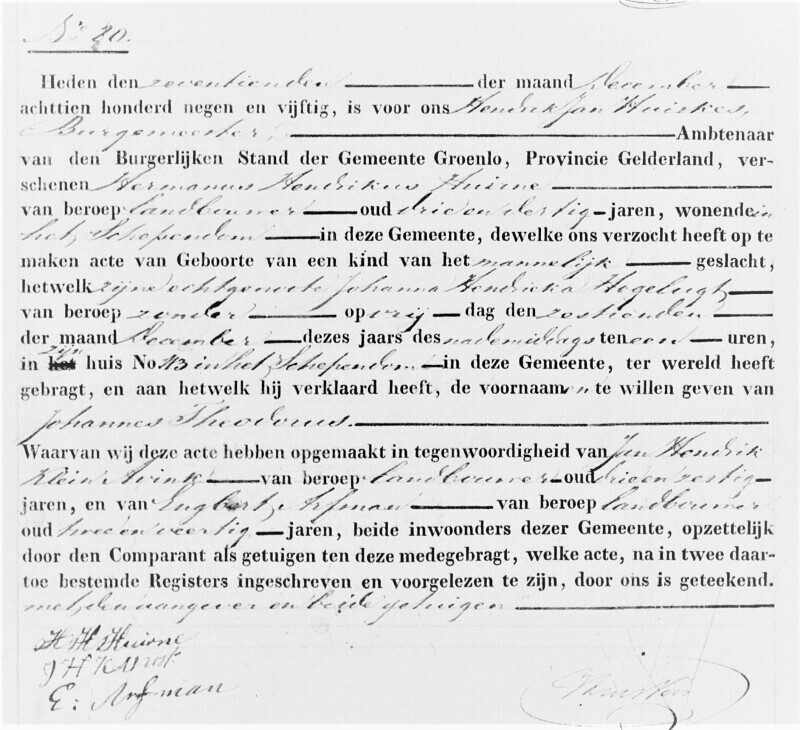 No 80.
Heden den zeventienden der maand December
achttien honderd negen en vijftig, is voor ons Hendrik Jan Huiskes,
Burgemeester, Ambtenaar
van den Burgerlijken Stand der Gemeente Groenlo, Provincie Gelderland, ver-
schenen Hermanus Hendrikus Huirne
van beroep landbouwer oud drie en dertig jaren, wonende in
het Schependom in deze Gemeente, dewelke ons verzocht heeft op te
maken acte van Geboorte van een kind van het mannelijk geslacht,
hetwelk zijne echtgenoote Johanna Hendrika Hogelugt
van beroep zonder op vrij dag den zestienden
der maand December dezes jaars des nademiddags ten een uren,
in zijn huis No. in het Schependom in deze Gemeente, ter wereld heeft
gebragt, en aan hetwelk hij verklaard heeft, de voornaamen te willen geven van
Johannes Theodorus.
Waarvan wij deze acte hebben opgemaakt in tegenwoordigheid van Jan Hendrik
Klein Avink van beroep landbouwer oud drie en zestig
jaren, en van Engbert Arfman van beroep landbouwer
oud twee en veertig jaren, beide inwoonders dezer Gemeente, opzettelijk
door den Comparant als getuigen ten deze medegebragt, welke acte, na in twee daar-
toe bestemde Registers ingeschreven en voorgelezen te zijn, door ons is geteekend.
met den aangever en beide getuigen
H H Huirne
J H K
E: Arfman